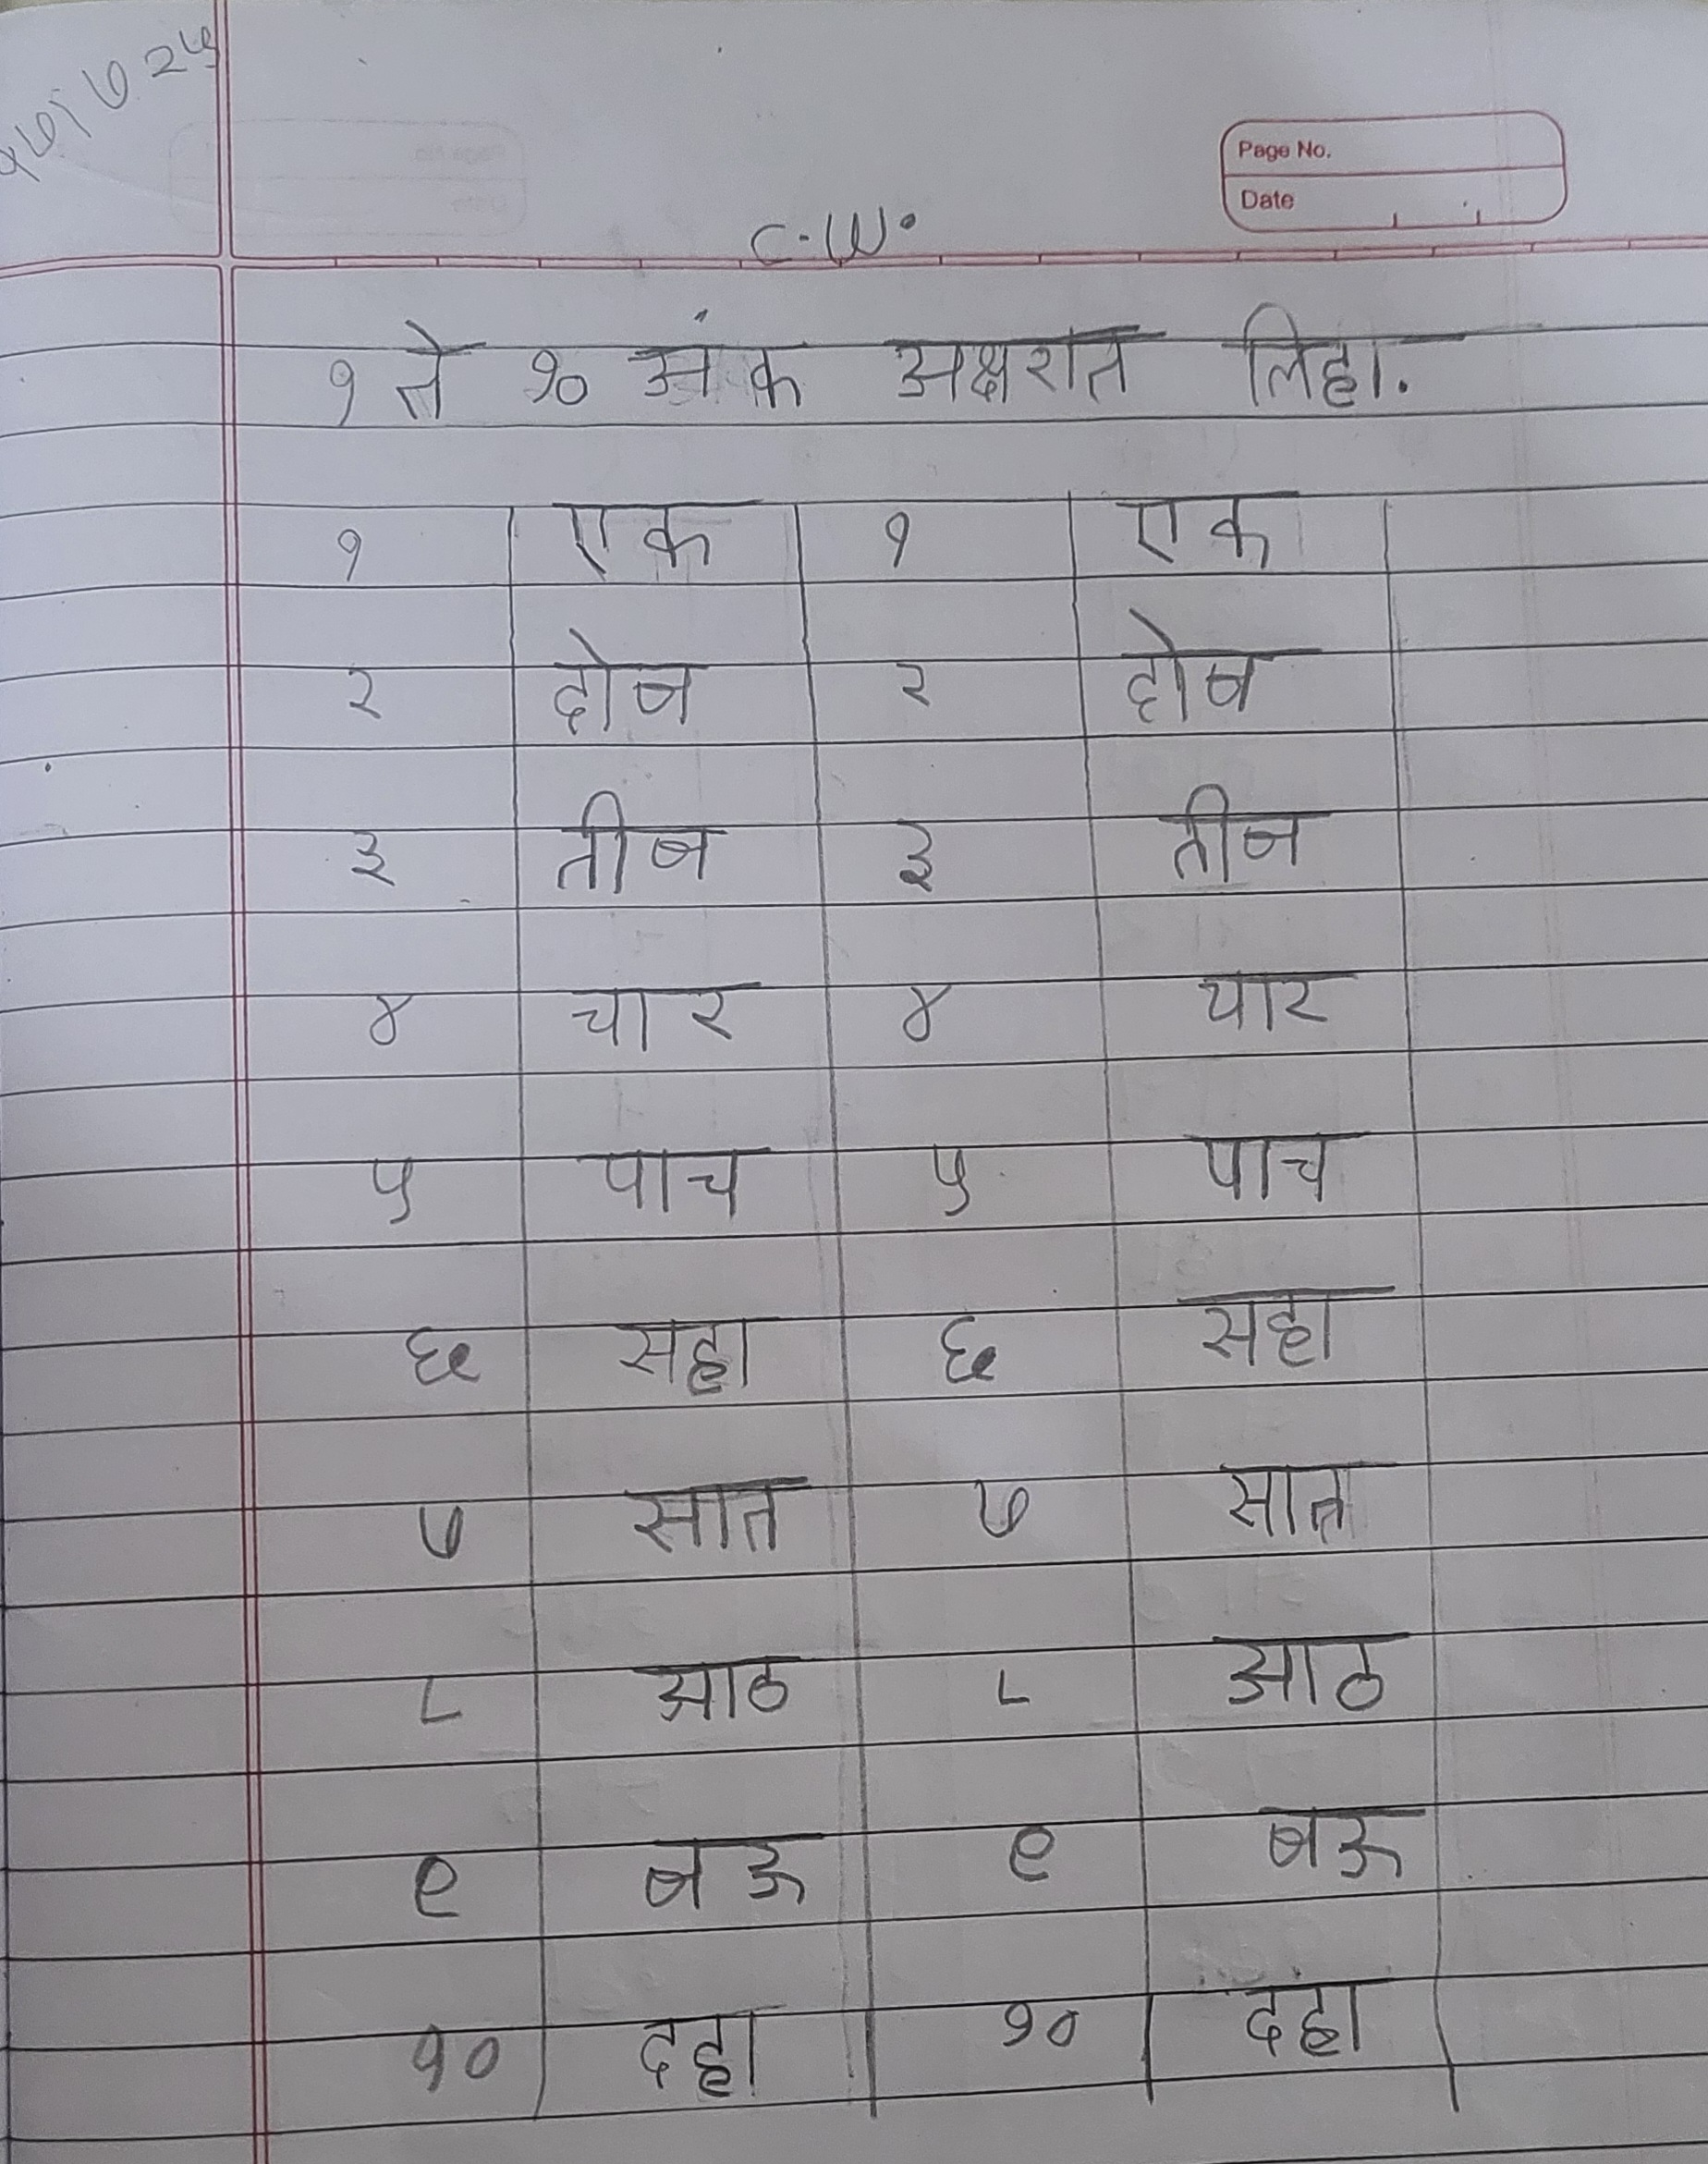 Page No.
Date
C.W.
१ ते १० अंक अक्षरात लिहा.
१ एक १ एक
२ दोन २ दोन
३ तीन ३ तीन
४ चार ४ चार
५ पाच ५ पाच
६ सहा ६ सहा
७ सात ७ सात
८ आठ ८ आठ
९ नऊ ९ नऊ
१० दहा १० दहा